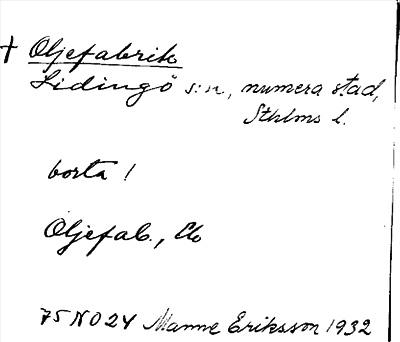 † Oljefabrik
Lidingö s:n, numera stad,
Sthlms l.
borta!
Oljefab., Ek
75 NO 24 Manne Eriksson 1932